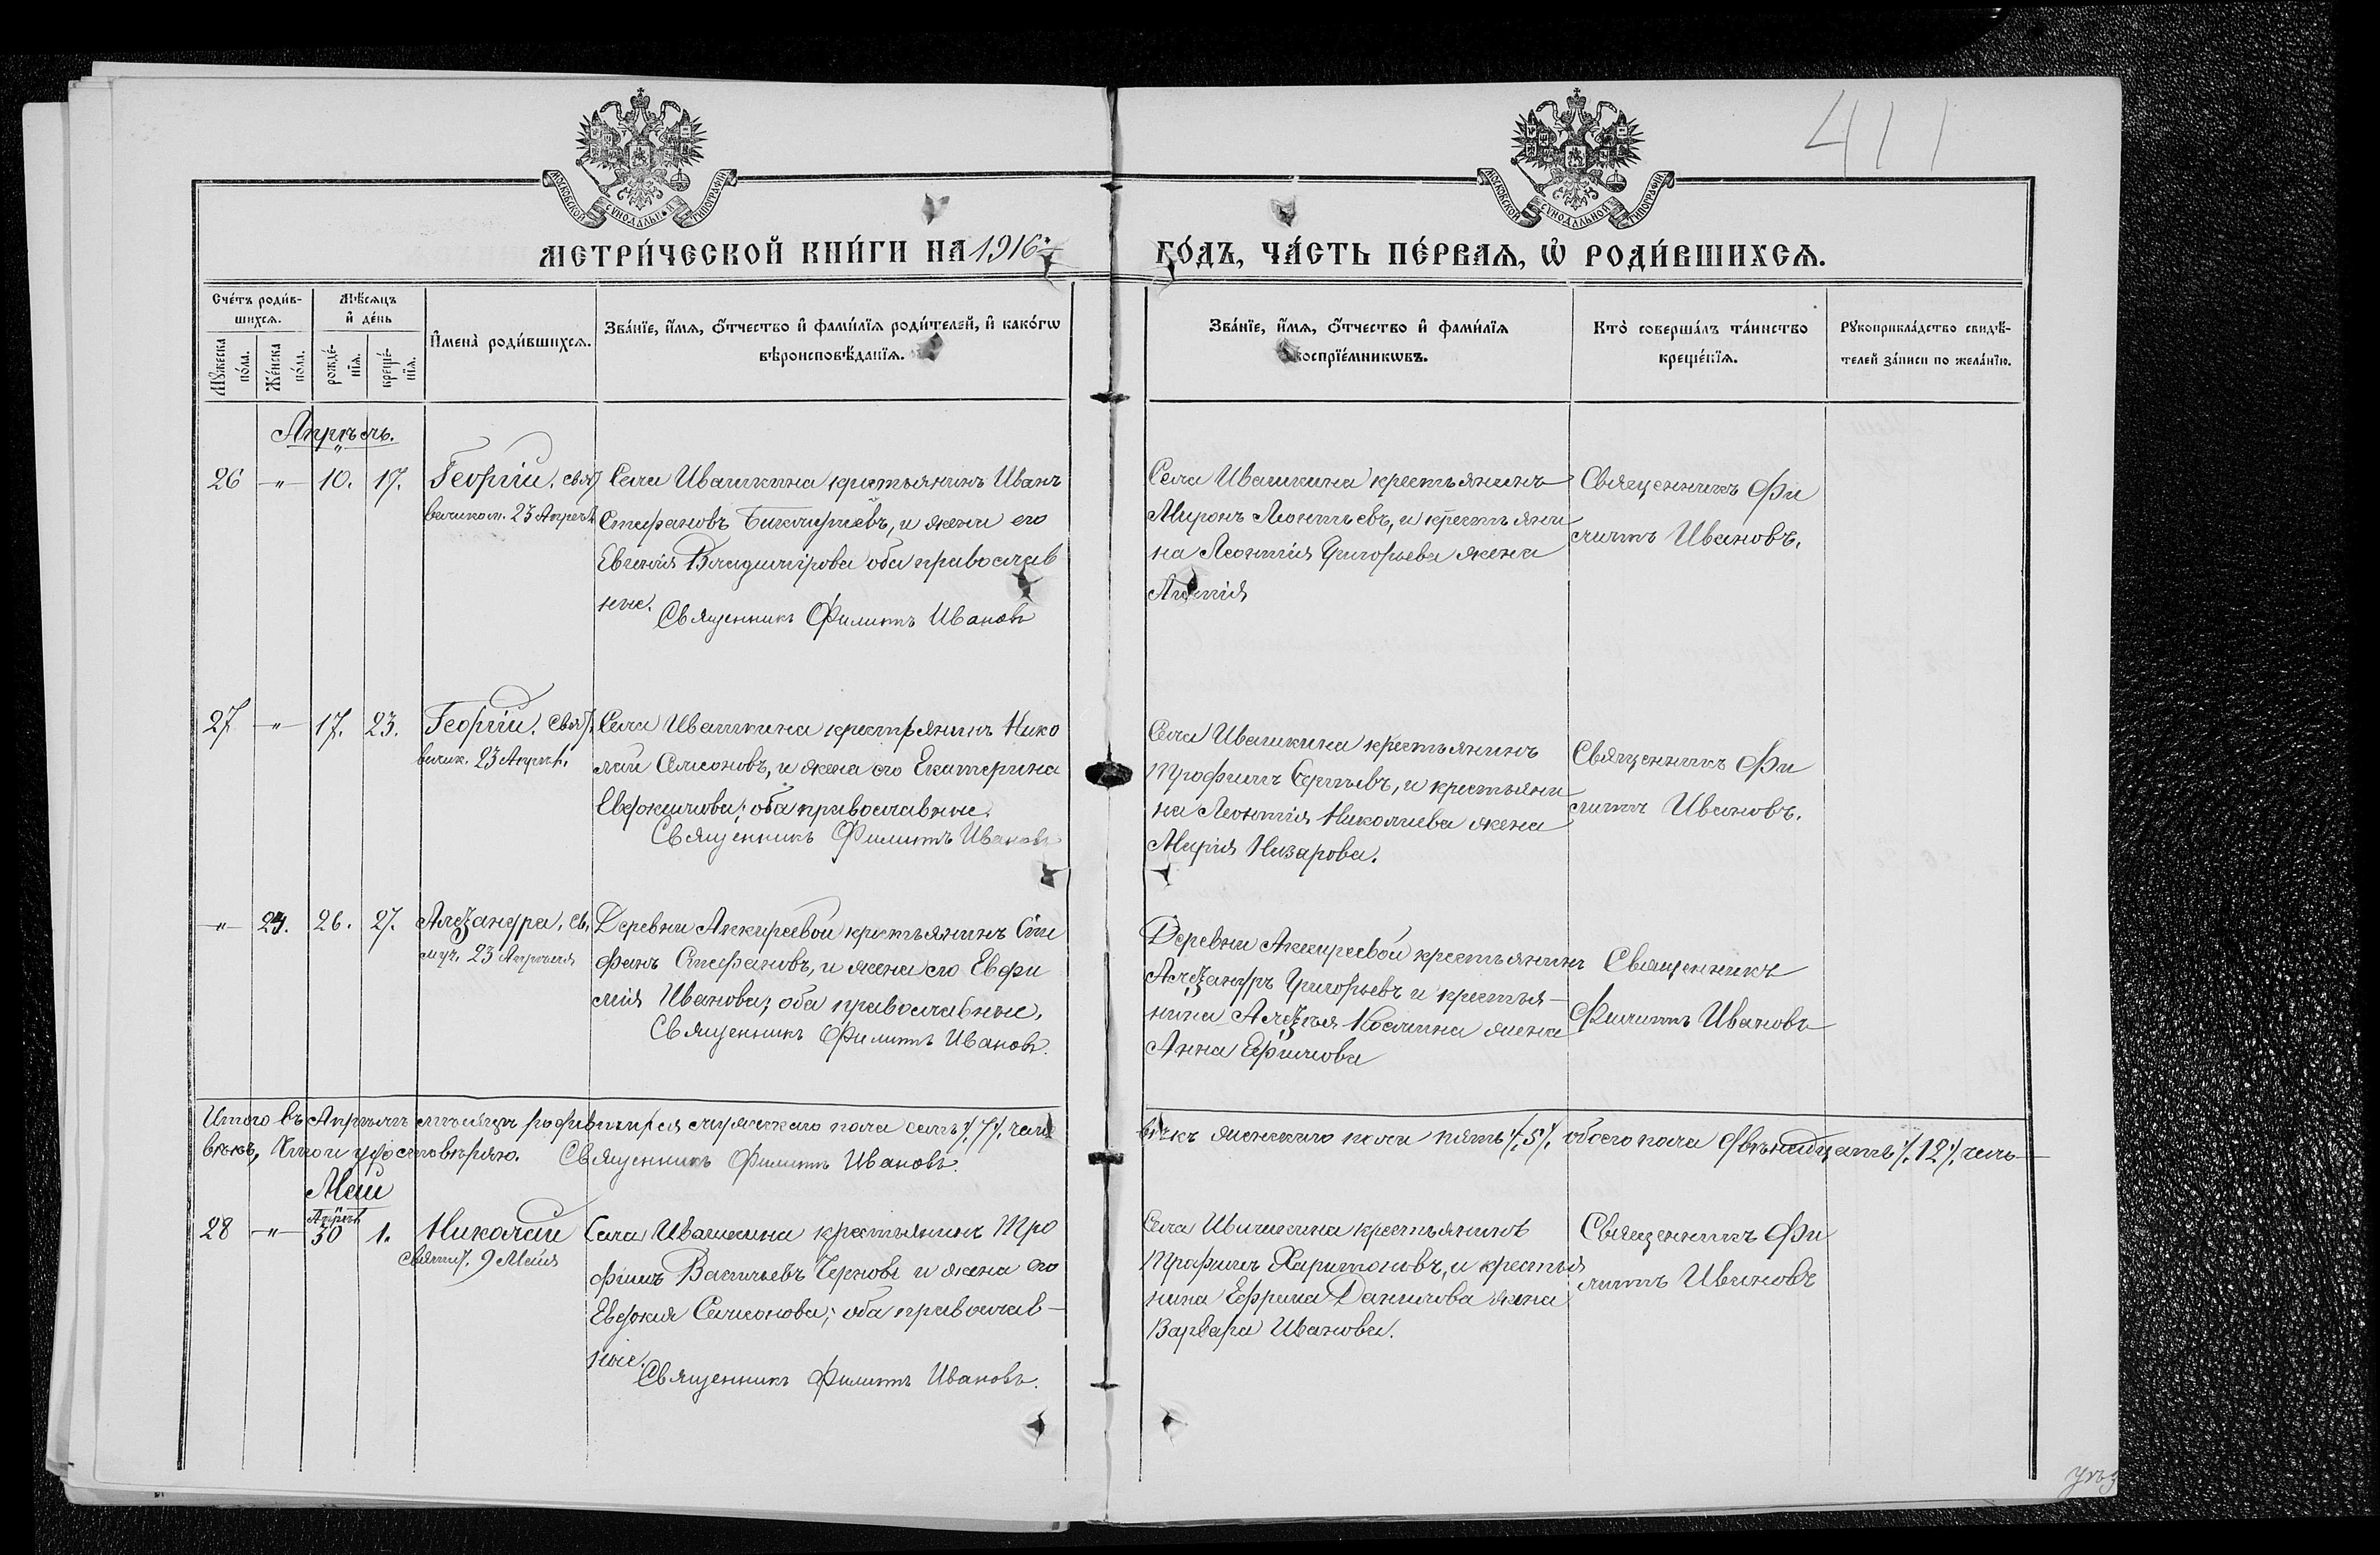 411
МОСКОВСКОЙ СѴНОДАЛЬНОЙ ТИПОГРАФІИ
МОСКОВСКОЙ СѴНОДАЛЬНОЙ ТИПОГРАФІИ
МЕТРИ́ЧЕСКОЙ КНИ́ГИ НА 1916 й
ГО́ДЪ, ЧА́СТЬ ПЕ́РВАЯ, Ѽ РОДИ́ВШИХСЯ.
Сче́тъ роди́в-
шихся.
Мꙋ́жеска по́ла.
Же́нска по́ла.
Мѣ́сяцъ
и҆ де́нь
рожде́-
нїя.
креще́-
нїя.
И҆мена̀ роди́вшихся.
Зва́нїе, и҆́мя, ѻ҆́тчество и҆ фами́лїя роди́телей, и҆ како́гѡ
вѣроисповѣ́данїя.
Зва́нїе, и҆́мя, ѻ҆́тчество и҆ фами́лїя
воспрїе́мникѡвъ.
Кто̀ соверша́лъ та́инство
креще́нїя.
Рꙋкоприкла́дство свидѣ́-
телей за́писи по жела́нїю.
Апрѣль.
26 " 10. 17.
Георгій, свят.
великом. 23 Апрѣл.
Села Ивашкина крестьянинъ Иванъ
Стефановъ , и жена его
Евгенія Владимірова оба православ
ные.
Священникъ Филиппъ Ивановъ
Села Ивашкина крестьянинъ
Миронъ Леонтьевъ, и крестьяни
на Леонтія Григорьева жена
Священникъ Фи
липпъ Ивановъ.
27 " 17. 23.
Георгій. свят.
велик. 23 Апрѣл.
Села Ивашкина крестьянинъ Нико
лай Самсоновъ, и жена его Екатерина
Евдокимова; оба православные.
Священникъ Филиппъ Ивановъ
Села Ивашкина крестьянинъ
Трофимъ Сергѣевъ, и крестьяни
на Леонтія Николаева жена
Марія Назарова.
Священникъ Фи
липпъ Ивановъ.
" 24. 26. 27.
Александра, св.
муч. 23 Апрѣля
Деревни Аккиреевой крестьянинъ Сте
фанъ Стефановъ, и жена его Евфи
мія Иванова; оба православные.
Священникъ Филиппъ Ивановъ.
Деревни Аккиреевой крестьянинъ
Александръ Григорьевъ и крестья-
нина Алексѣя Косьмина жена
Анна Ефимова
Священникъ
Филиппъ Ивановъ
Итого въ Апрѣлѣ мѣсяцѣ родившихся мужескаго пола семь /.7/. чело
вѣкъ женскаго пола пять /.5/. обоего пола двѣнадцать /.12/. чело-
вѣкъ, итоги удостовѣряю. Священникъ Филиппъ Ивановъ.
Май
28 " Апрѣл. 30 1.
Николай
святит. 9 Мая
Села Ивашкина крестьянинъ Тро
фимъ Васильевъ Черновъ и жена его
Евдокія Самсонова; оба православ-
ные.
Священникъ Филиппъ Ивановъ.
Села Ивашкина крестьянинъ
Трофимъ Харитоновъ, и крестья
нина Ефрема Данилова жена
Варвара Иванова.
Священникъ Фи
липпъ Ивановъ